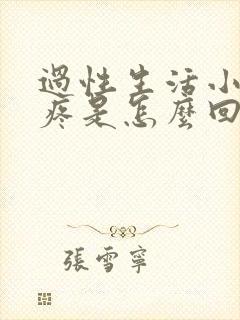 過性生活小
疼是怎麼回
張雪寧